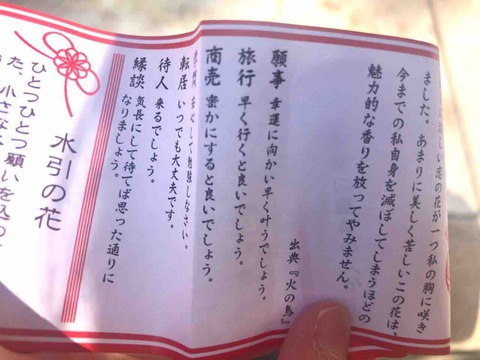 恋の花が一つ私の胸に咲き
ました。あまりに美しく苦しいこの花は、
今までの私自身を滅ぼしてしまうほどの
魅力的な香りを放ってやみません。
出典『火の鳥』
願事 幸運に向かい早く叶うでしょう。
旅行 早く行くと良いでしょう。
商売 密かにすると良いでしょう。
して勉強しなさい。
転居 いつでも大丈夫です。
待人 来るでしょう。
縁談 気長にして待てば思った通りに
なりましょう。
水引の花
ひとつひとつ願いを込め
た、小さな